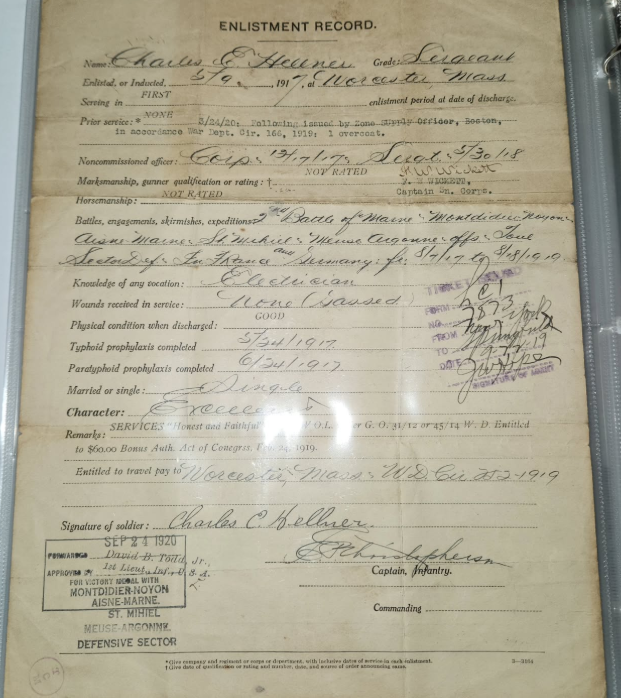 ENLISTMENT RECORD.
Name: Charles E Hellner Grade: Sergeant
Enlisted, or Inducted, 5/9, 1917, at Worcester, Mass
Serving in FIRST enlistment period at date of discharge.
Prior service: * NONE 3/24/20: Following issued by Zone Supply Officer, Boston,
in accordance War Dept. Cir. 166, 1919; 1 overcoat.
Noncommissioned officer: Corp: 12/17/17: Sergt: 5/30/18
Marksmanship, gunner qualification or rating: † NOT RATED
WICKETT,
Horsemanship: NOT RATED
Captain En. Corps.
Battles, engagements, skirmishes, expeditions: 2nd Battle of Marne: Montdidier Noyon:
Aisne Marne: St. Mihiel: Meuse Argonne: offs:
Sector: In France and Germany: fr: 8/7/17 to 8/18/1919
Knowledge of any vocation: Electrician
Wounds received in service: None (Gassed)
Physical condition when discharged: GOOD
Typhoid prophylaxis completed 5/24/1917
Paratyphoid prophylaxis completed 6/24/1917
Married or single: Single
Character: Excellent
Remarks: SERVICES "Honest and Faithful" G. O. 31/12 or 45/14 W. D. Entitled
to $60.00 Bonus Auth. Act of Conegrss. Feb. 24, 1919.
Entitled to travel pay to Worcester, Mass: W.D. Cir 252-1919
FORM
NO. 7873
FROM New York
TO
DATE
SIGNATURE OF AGENT
Signature of soldier: Charles E. Hellner.
Captain, Infantry.
Commanding
SEP 24 1920
FORWARDED David B. Todd, Jr.,
APPROVED BY 1st Lieut., Inf., U. S. A.
FOR VICTORY MEDAL WITH
MONTDIDIER-NOYON
AISNE-MARNE.
ST. MIHIEL
MEUSE-ARGONNE.
DEFENSIVE SECTOR
*Give company and regiment or corps or department, with inclusive dates of service in each enlistment.
†Give date of qualification or rating and number, date, and source of order announcing same.
3—3164